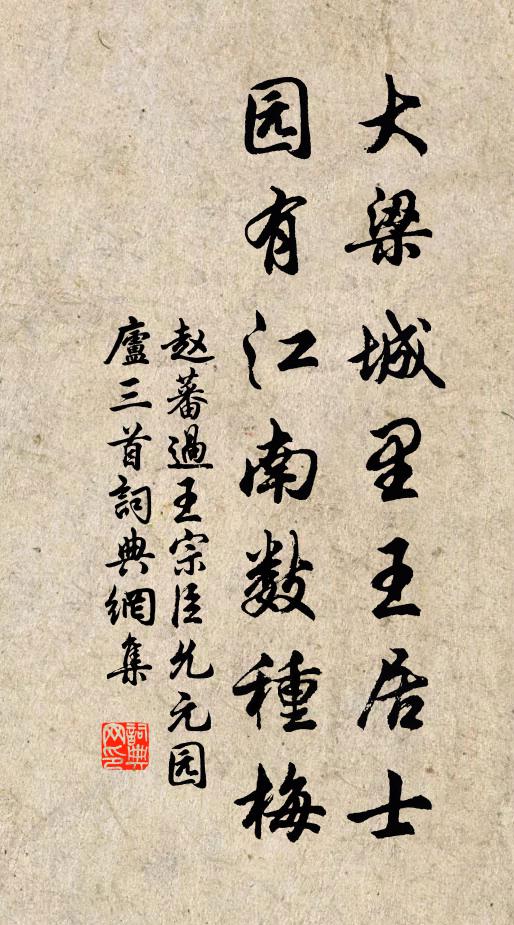 大梁城里王居士
园有江南数種梅
赵蕃過王宗臣允元园
廬三首詞典網集
詞典网印